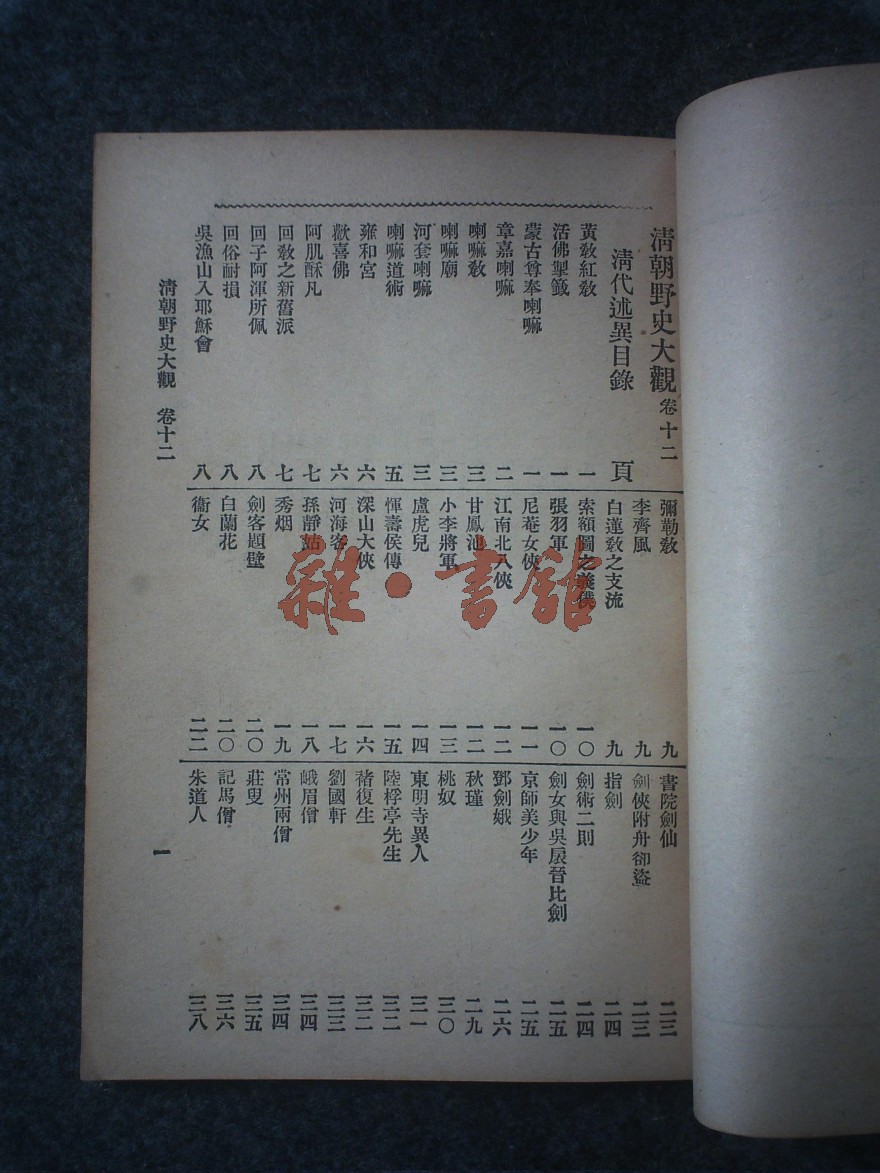 清朝野史大觀 卷十二
清代述異目錄 頁
黃敎紅敎 一
活佛掣籤 一
蒙古尊奉喇嘛 一
章嘉喇嘛 二
喇嘛敎 三
喇嘛廟 三
河套喇嘛 三
喇嘛道術 五
雍和宮 六
歡喜佛 六
阿肌酥凡 七
回敎之新舊派 七
回子阿渾所佩 八
回俗耐損 八
吳漁山入耶穌會 八
彌勒敎 九
李齊風 九
白蓮敎之支流 九
索額圖之義僕 一〇
張羽軍 一〇
尼菴女俠 一一
江南北八俠 一二
甘鳳池 一二
小李將軍 一三
盧虎兒 一四
惲壽侯傳 一五
深山大俠 一六
河海客 一七
孫靜姑 一八
秀烟 一九
劍客題壁 二〇
白蘭花 二〇
衞女 二二
書院劍仙 二三
劍俠附舟卻盜 二三
指劍 二四
劍術二則 二四
劍女與吳展晉比劍 二五
京師美少年 二五
鄧劍娥 二六
秋瑾 二九
桃奴 三〇
東明寺異人 三一
陸桴亭先生 三二
褚復生 三二
劉國軒 三三
峨眉僧 三四
常州兩僧 三四
莊叟 三五
記馬僧 三六
朱道人 三八
清朝野史大觀 卷十二
一
雜·書館